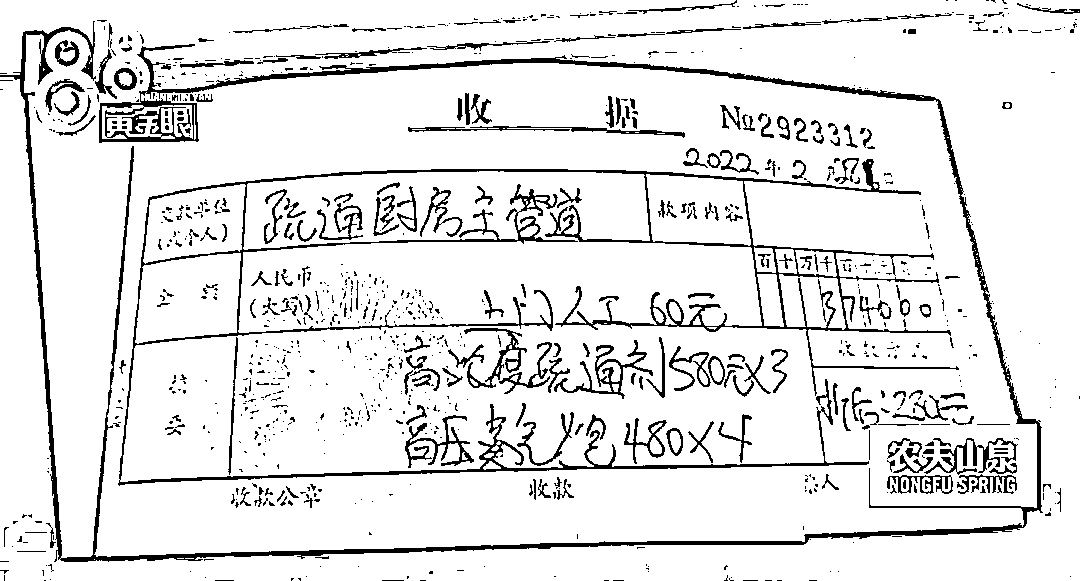 1818
HUANGJINYAN
黄金眼
收 据
№2923312
2022年2月 日
交款单位
(或个人)
疏通厨房主管道
款项内容
金 额
人民币
(大写)
上门人工 60元
百十万千百十元角分
374000
摘
要
高浓度疏通剂580元×3
高压蒸气炮480×4
收款方式
折后:230元
收款公章
收款
人
农夫山泉
NONGFU SPRING